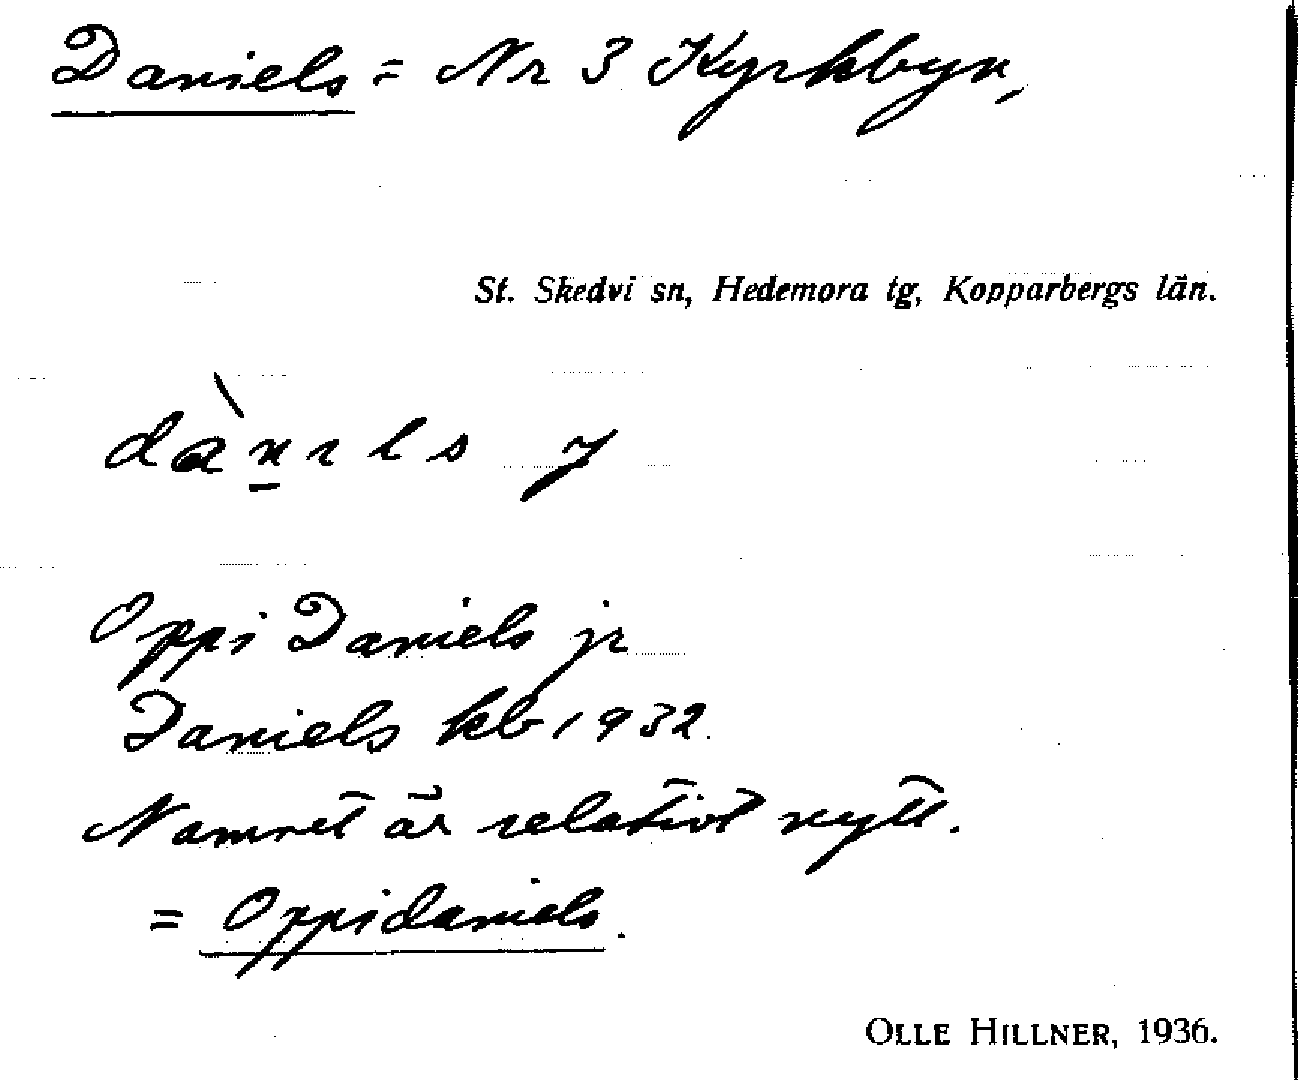 Daniels = Nr 3 Kyrkbyn,
St. Skedvi sn, Hedemora tg, Kopparbergs län.
Oppi Daniels jr
Daniels kb 1932.
Namnet är relativt nytt.
= Oppidaniels.
OLLE HILLNER, 1936.